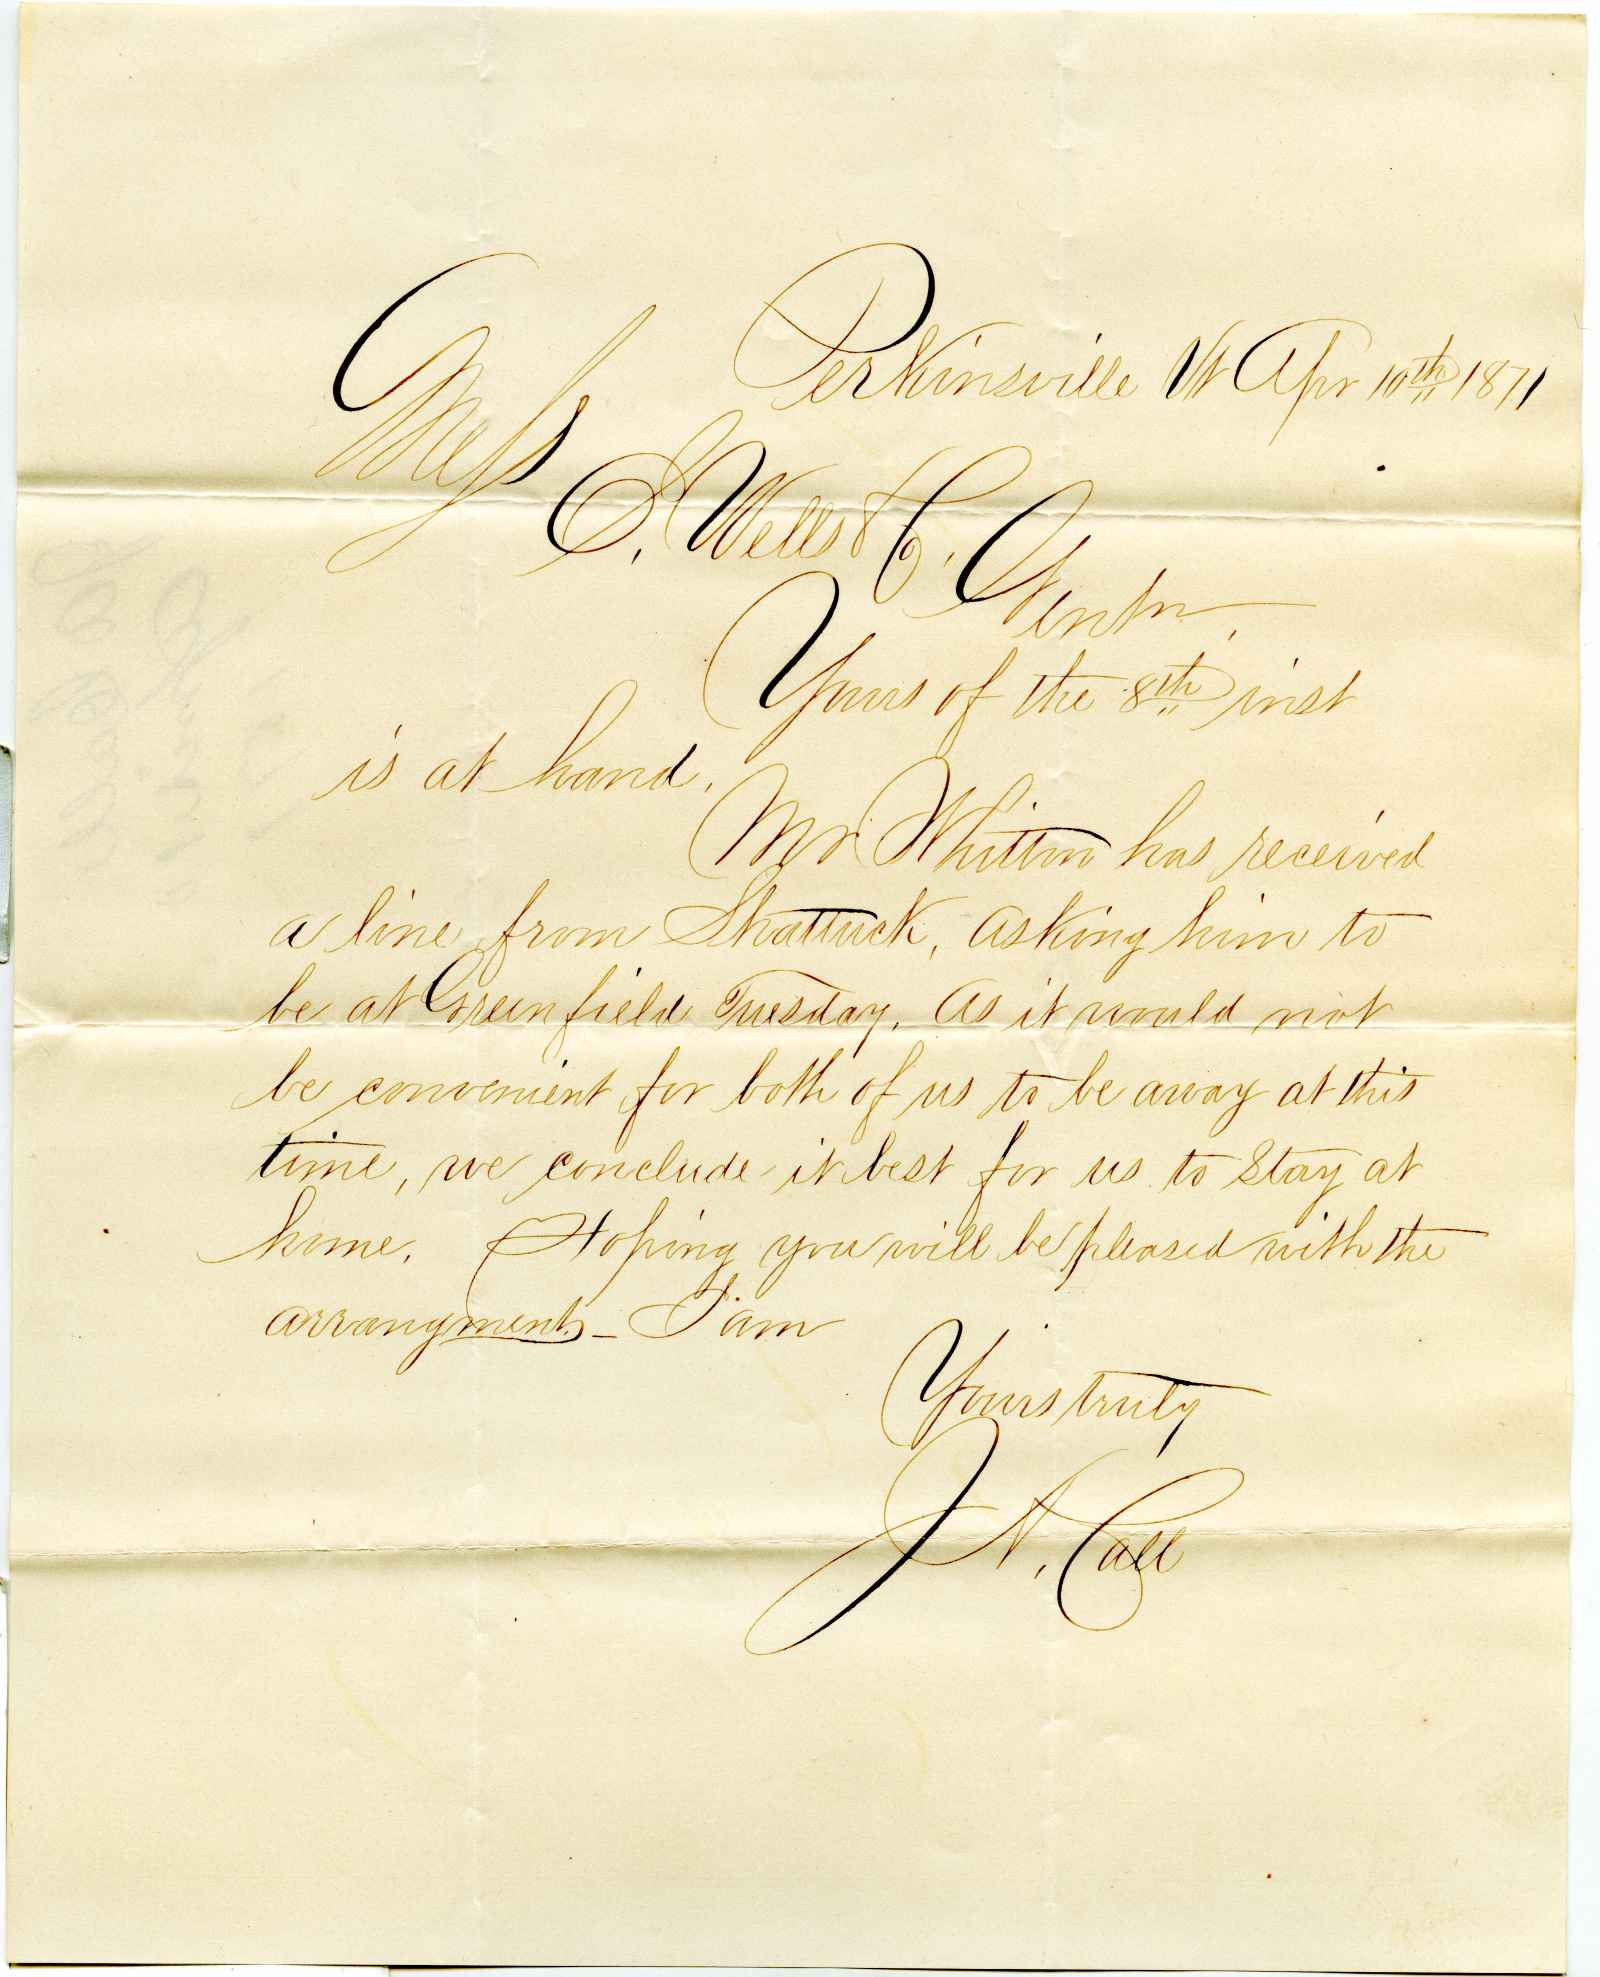 Perkinsville Vt Apr 10th 1871
Mess
S. Wells & Co. Gentn.
Yours of the 8th inst
is at hand.
Mr Whitten has received
a line from Shattuck, asking him to
be at Greenfield Tuesday. As it would not
be convenient for both of us to be away at this
time, we conclude it best for us to stay at
home. Hoping you will be pleased with the
arrangment - I am
Yours truly
J. N. Call